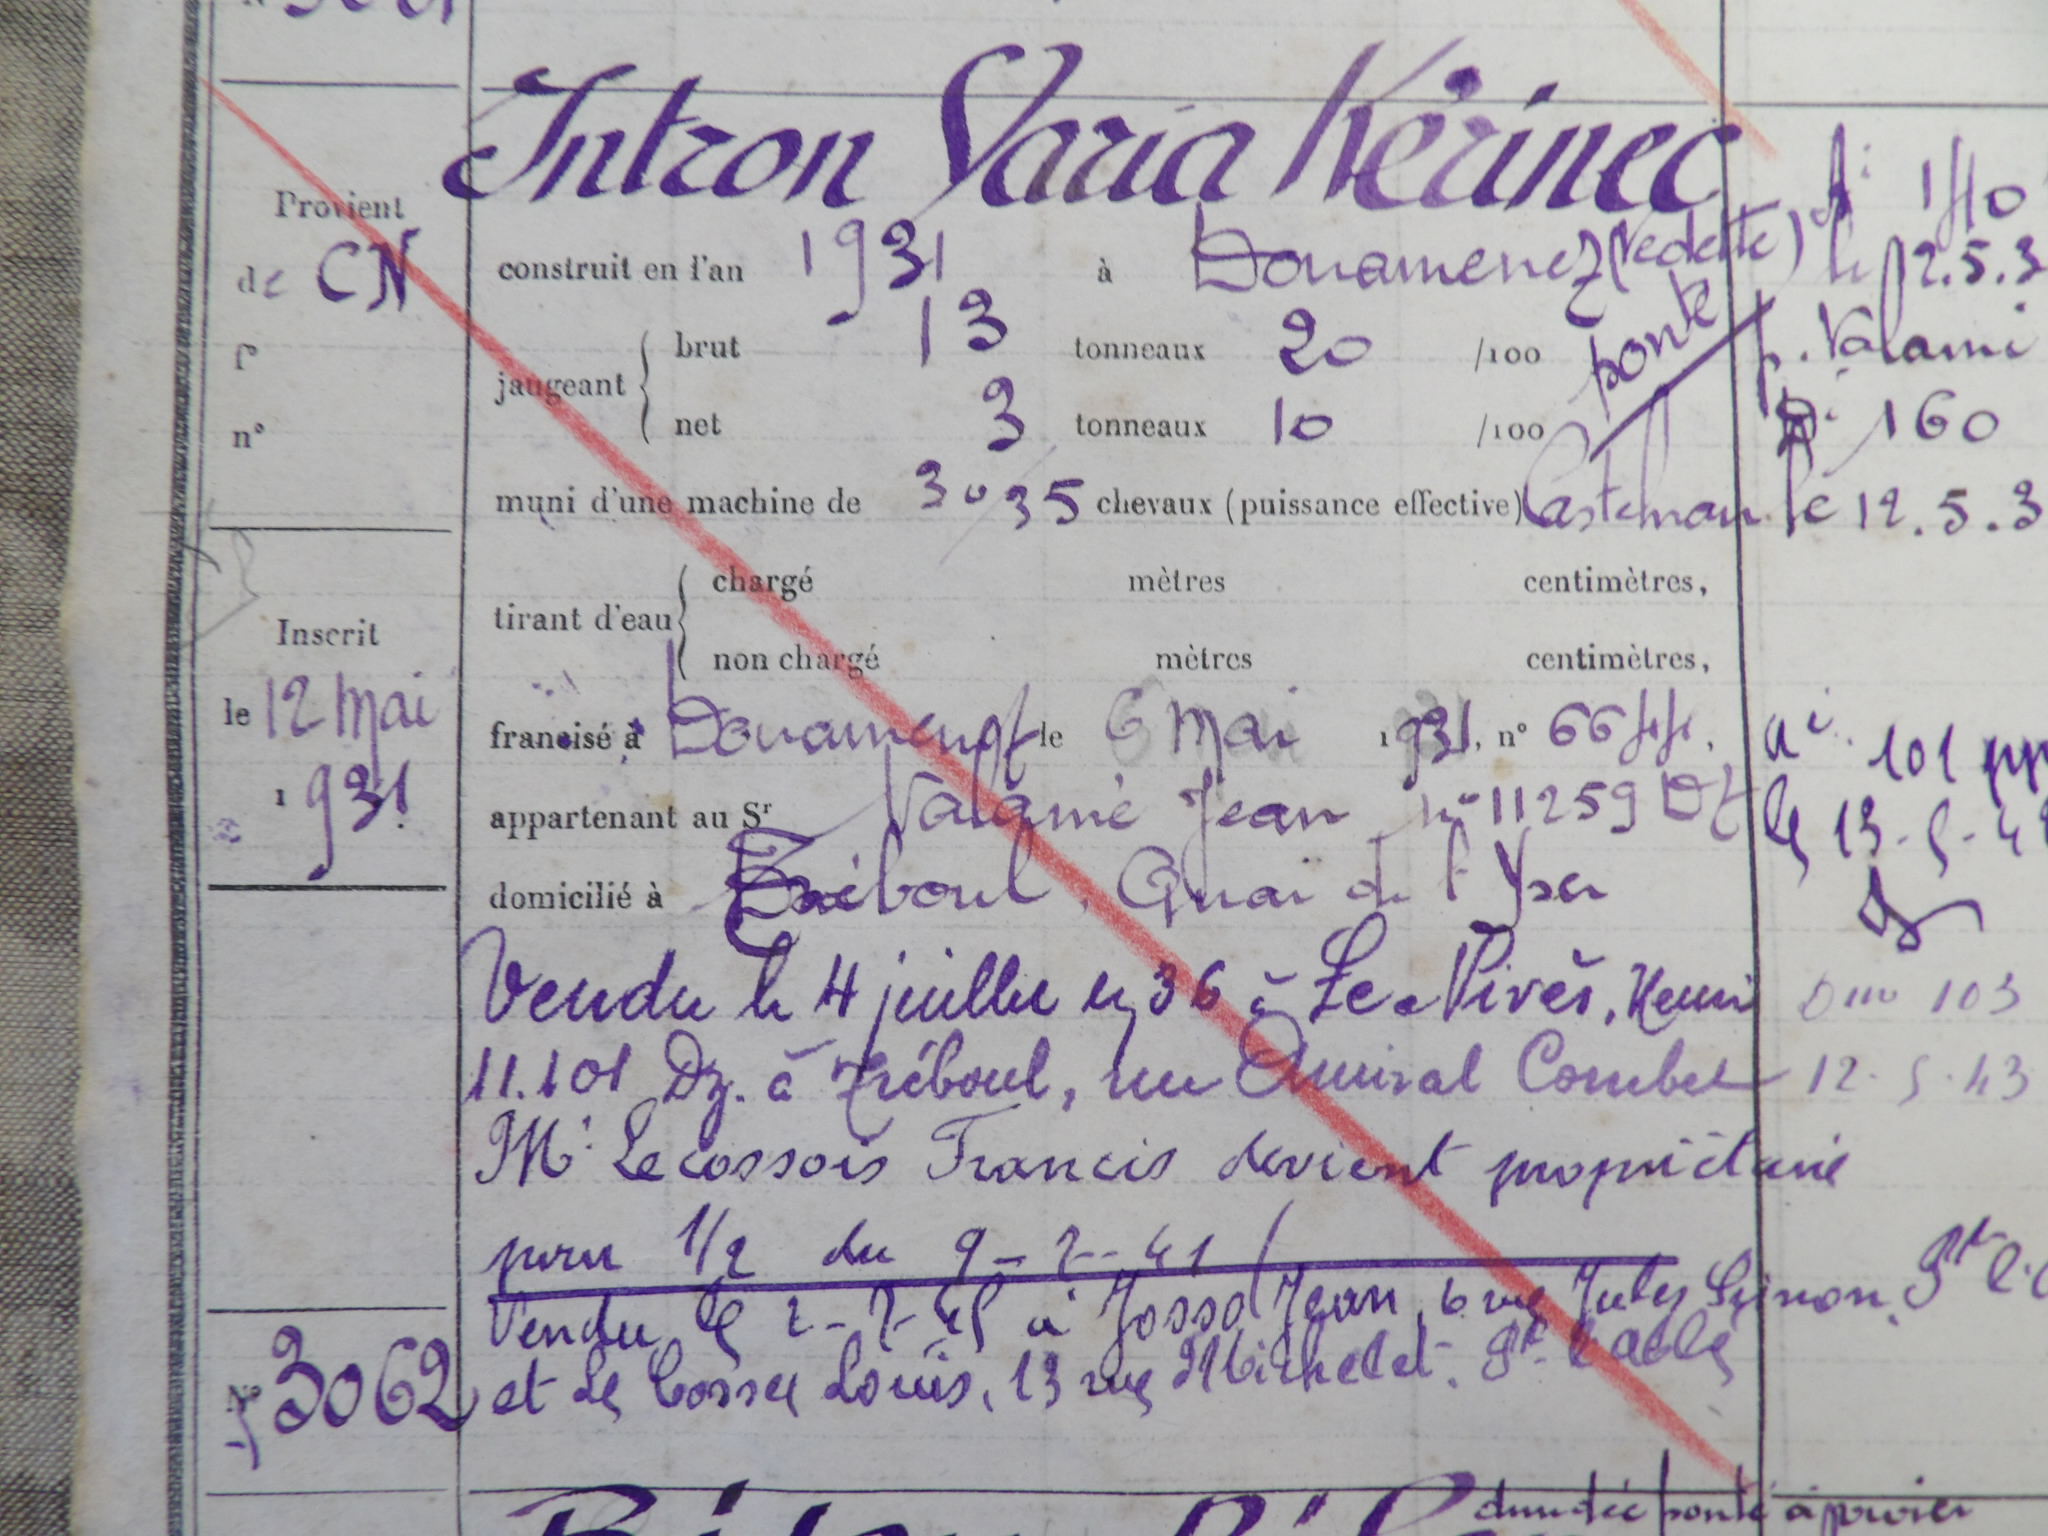 Intron Varia Kérinec
Provient
de CN
f°
n°
construit en l'an 1931 à Douarnenez (Vedette)
pontée
jaugeant
brut 13 tonneaux 20 /100
net 3 tonneaux 10 /100
muni d'une machine de 30/35 chevaux (puissance effective) Castelnau
tirant d'eau
chargé mètres centimètres,
non chargé mètres centimètres,
Inscrit
le 12 Mai
1931
francisé à Douarnenez le 6 Mai 1931, n°
appartenant au Sr Valamé Jean n° 11259 Dz
domicilié à Tréboul, Quai de l'Yser
Vendu le 4 juillet 36 à Le Pivès, Henri
11.101 Dz. à Tréboul, rue Amiral Courbet
Mr Lecossois Francis devient propriétaire
pour 1/2 du 9-7-41
Vendu le 2-7-45 à Josso Jean, 6 rue Jules Simon,
et Le Cossec Louis, 13 rue Michelet.
N° 3062
le 12.5.3
p. Valamé
160
le 12.5.3
101
le 13-5-42
103
12.5.43
dundée ponté à